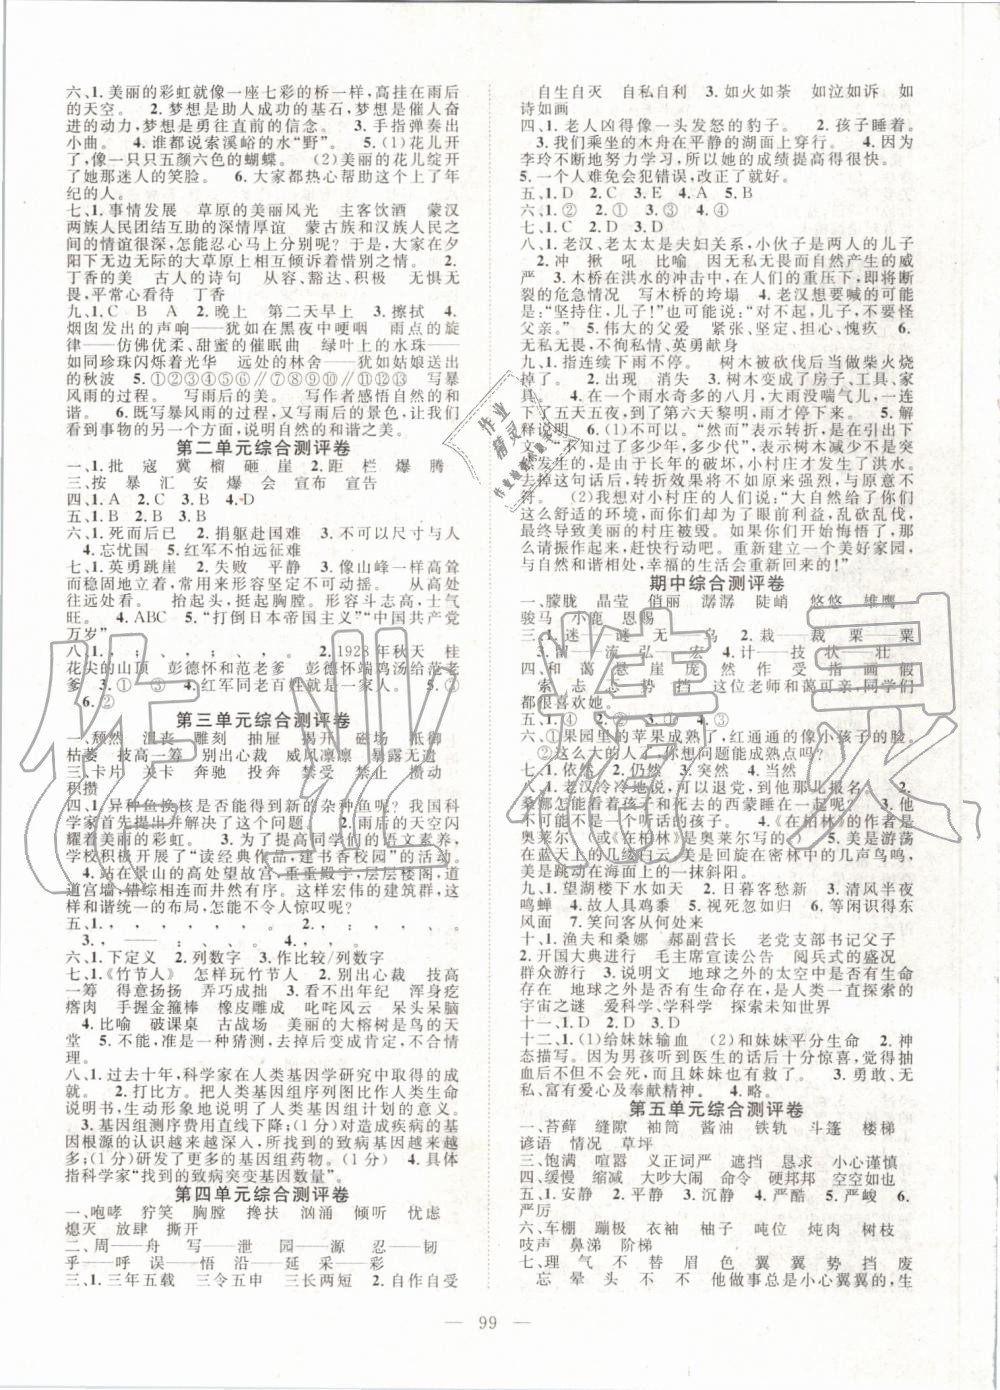 六、1. 美丽的彩虹就像一座七彩的桥一样,高挂在雨后
的天空。 2. 梦想是助人成功的基石,梦想是催人奋
进的动力,梦想是勇往直前的信念。 3. 手指弹奏出
小曲。 4. 谁都说索溪峪的水“野”。 5. (1)花儿开
了,像一只只五颜六色的蝴蝶。 (2)美丽的花儿绽开
了她那迷人的笑脸。 6. 大家都热心帮助这个上了年
纪的人。
七、1. 事情发展 草原的美丽风光 主客饮酒 蒙汉
两族人民团结互助的深情厚谊 蒙古族和汉族人民之
间的情谊很深,怎能忍心马上分别呢?于是,大家在夕
阳下无边无际的大草原上相互倾诉着惜别之情。 2.
丁香的美 古人的诗句 从容、豁达、积极 无惧无
畏,平常心看待 丁香
九、1. C B A 2. 晚上 第二天早上 3. 擦拭 4.
烟囱发出的声响——犹如在黑夜中哽咽 雨点的旋
律——仿佛优柔、甜蜜的催眠曲 绿叶上的水珠——
如同珍珠闪烁着光华 远处的林舍——犹如姑娘送出
的秋波 5. ①②③④⑤⑥∥⑦⑧⑨⑩⑪⑫⑬ 写暴
风雨的过程。 写雨后的美。 写作者感悟自然的和
谐。 6. 既写暴风雨的过程,又写雨后的景色,让我们
看到事物的另一方面,说明自然的和谐之美。
第二单元综合测评卷
一、1. 批 寇 冀 榴 砸 崖 2. 距 栏 爆 腾
三、按 暴 汇 安 爆 会 宣布 宣告
四、1. A 2. C 3. B 4. D
五、1. B 2. B 3. B
六、1. 死而后已 2. 捐躯赴国难 3. 不以尺寸与人
4. 忘忧国 5. 红军不怕远征难
七、1. 英勇跳崖 2. 失败 平静 3. 像山峰一样高耸
而稳固地立着,常用来形容坚定不可动摇。 从高处
往远处看。 抬起头,挺起胸膛。形容斗志高,士气
旺。 4. ABC 5. “打倒日本帝国主义”“中国共产党
万岁”
八、1. , 。 , 、 , 。 2. 1928年秋天 桂
花尖的山顶 彭德怀和范老爹 彭德怀端鸡汤给范老
爹 3. ① ③ 4. 红军同老百姓就是一家人。 5. ②
6. ②
第三单元综合测评卷
一、颓然 沮丧 雕刻 抽屉 揭开 磁场 抵御
枯萎 技高一筹 别出心裁 威风凛凛 暴露无遗
三、卡片 关卡 奔驰 投奔 禁受 禁止 攒动
积攒
四、1. 异种鱼换核是否能得到新的杂种鱼呢?我国科
学家首先提出并解决了这个问题。 2. 雨后的天空闪
耀着美丽的彩虹。 3. 为了提高同学们的语文素养,
学校积极开展了“读经典作品,建书香校园”的活动。
4. 站在景山的高处望故宫,重重殿宇,层层楼阁,道
道宫墙,错综相连而井然有序。这样宏伟的建筑群,这
样和谐统一的布局,怎能不令人惊叹呢?
六、1. 下定义 2. 列数字 3. 作比较/列数字
七、1. 《竹节人》 怎样玩竹节人 2. 别出心裁 技高
一筹 得意扬扬 弄巧成拙 3. 看不出年纪 浑身疙
瘩肉 手握金箍棒 橡皮雕成 叱咤风云 呆头呆脑
4. 比喻 破课桌 古战场 美丽的大榕树是鸟的天
堂 5. 不能,准是一种猜测,去掉后变成肯定,不严
谨。
八、1. 过去十年,科学家在人类基因学研究中取得的成
就。 2. 打比方。把人类基因组序列图比作人类生命
说明书,生动形象地说明了人类基因组计划的意义。
3. 基因组测序费用直线下降;(1分)对造成疾病的基
因根源的认识越来越深入,所找到的致病基因越来越
多;(1分)研发了许多基因组药物。(1分) 4. 具体
指科学家“找到的致病突变基因数量”。
第四单元综合测评卷
一、咆哮 狞笑 胸膛 搀扶 汹涌 倾听 忧虑
熄灭 放肆 撕开
二、周——舟 写——泄 园——源 忍——韧
乎——呼 误——悟 沿——延 采——彩
三、1. 三年五载 三令五申 三长两短 2. 自作自受
自生自灭 自私自利 3. 如火如荼 如泣如诉 如
诗如画
四、1. 老人凶得像一头发怒的豹子。 2. 孩子睡着。
3. 我们乘坐的木舟在平静的湖面上穿行。 4. 因为
李玲不断地努力学习,所以她的成绩提高得很快。
5. 一个人难免会犯错误,改正了就好。
五、1. D 2. C 3. E 4. A 5. B
六、1. ② ① 2. ① ② 3. ① ②
七、1. C 2. D 3. D
八、1. 老汉、老太太是夫妇关系,小伙子是两人的儿子
2. 冲 揪 吼 比喻 因为无私无畏而自然产生的威
严 3. 木桥在洪水的冲击中,在人们的重压下,即将断
裂的危急情况 写木桥的垮塌 4. 老汉想要喊的可能
是:“坚持住,儿子!”也可能是:“对不起,儿子,不要怪
父亲。” 5. 伟大的父爱 紧张、坚定、担心、愧疚 6.
无私无畏、不徇私情、英勇献身
九、1. 指连续下雨不停。 树木被砍伐后当做柴火烧
掉了。 2. 出现 消失 3. 树木变成了房子、工具、家
具。 4. 在一个雨水奇多的八月,大雨没喘气儿,一连
下了五天五夜,到了第六天黎明,雨才住了。 5. 解
释说明 6. (1)不可以。“然而”表示转折,在本段中突
出“不知过了多少年,多少代”,表示树木从出现到毁
灭,是由于长年的破坏,小村庄才产生了洪水。
去掉这句话后,转折效果将不能呈现出来,与原意不
符。 (2)我想对小村庄的人们说:“大自然给了你们
这么舒适的环境,而你们却为了眼前利益,乱砍乱伐,
最终导致美丽的村庄被毁。如果你们想要弥补,那么
就请振作起来,赶快行动吧。重新建立一个美好家园,
与自然和谐相处,幸福的生活会重新回来的!”
期中综合测评卷
一、朦胧 晶莹 俏丽 潺潺 陡峭 悠悠 雄鹰
骏马 小鹿 恩赐
三、1. 迷——谜 无——乌 2. 栽——裁 粟——粟
3. 留——流 弘——宏 4. 技——技 状——壮
四、和 蔼 悬 崖 庞 然 作 受 指 画 假
索 志 态 势 挡 这位老师和蔼可亲,同学们
都很喜欢她。
五、1. ④ 2. ② 3. ① 4. ③
六、①果园里的苹果成熟了,红通通的像小孩子的脸。
②这么大的人了,你想问题能成熟点吗?
七、1. 依然 2. 仍然 3. 突然 4. 当然
八、1. 老汉冷冷地说,可以退党,到他那儿报名。 2.
桑娜怎能看着孩子和死去的西蒙睡在一起呢? 3. 他
不可能不是一个听话的孩子。 4. 《在柏林》的作者是
奥莱尔。(或《在柏林》是奥莱尔写的) 5. 美是游荡
在蓝天上的几缕白云,美是回旋在密林中的几声鸟鸣,
美是跳动在海面上的一抹斜阳。
九、1. 望湖楼下水如天 2. 日暮客愁新 3. 清风半夜
鸣蝉 4. 故人具鸡黍 5. 受益惟谦 6. 等闲识得东
风面 7. 笑问客从何处来
十、1. 渔夫和桑娜 郝副营长 老党支部书记父子
2. 开国大典进行 毛主席宣读公告 阅兵式的盛况
群众游行 3. 说明文 地球之外的太空中是否有生命
存在 地球之外是否有生命存在,是人类一直探索的
宇宙之谜 爱科学、学科学 探索未知世界
十一、1. D 2. D 3. D
十二、1. (1)给妹妹输血 (2)和妹妹一起生活 2. 神
态描写。因为男孩听到医生的话后十分高兴,觉得抽
血后不是自己一个人死,而且妹妹也有生命。 3. 勇敢、无
私,富有爱心及奉献精神。 4. 略。
第五单元综合测评卷
一、苔藓 缝隙 袖筒 酱油 铁轨 斗篷 楼梯
谚语 情况 草坪
三、饱满 喧嚣 义正词严 遮挡 恳求 小心谨慎
四、缓慢 缩减 大吵大闹 命令 硬邦邦 空空如也
五、1. 安静 2. 平静 3. 沉静 4. 严酷 5. 严峻 6.
严厉
六、车棚 蹦极 衣袖 柚子 吨位 炖肉 树枝
吱声 鼻涕 阶梯
七、理 气 不 替 眉 色 翼 翼 势 挡 废
忘 晕 头 不 不 他做事总是小心翼翼的,生
— 99 —